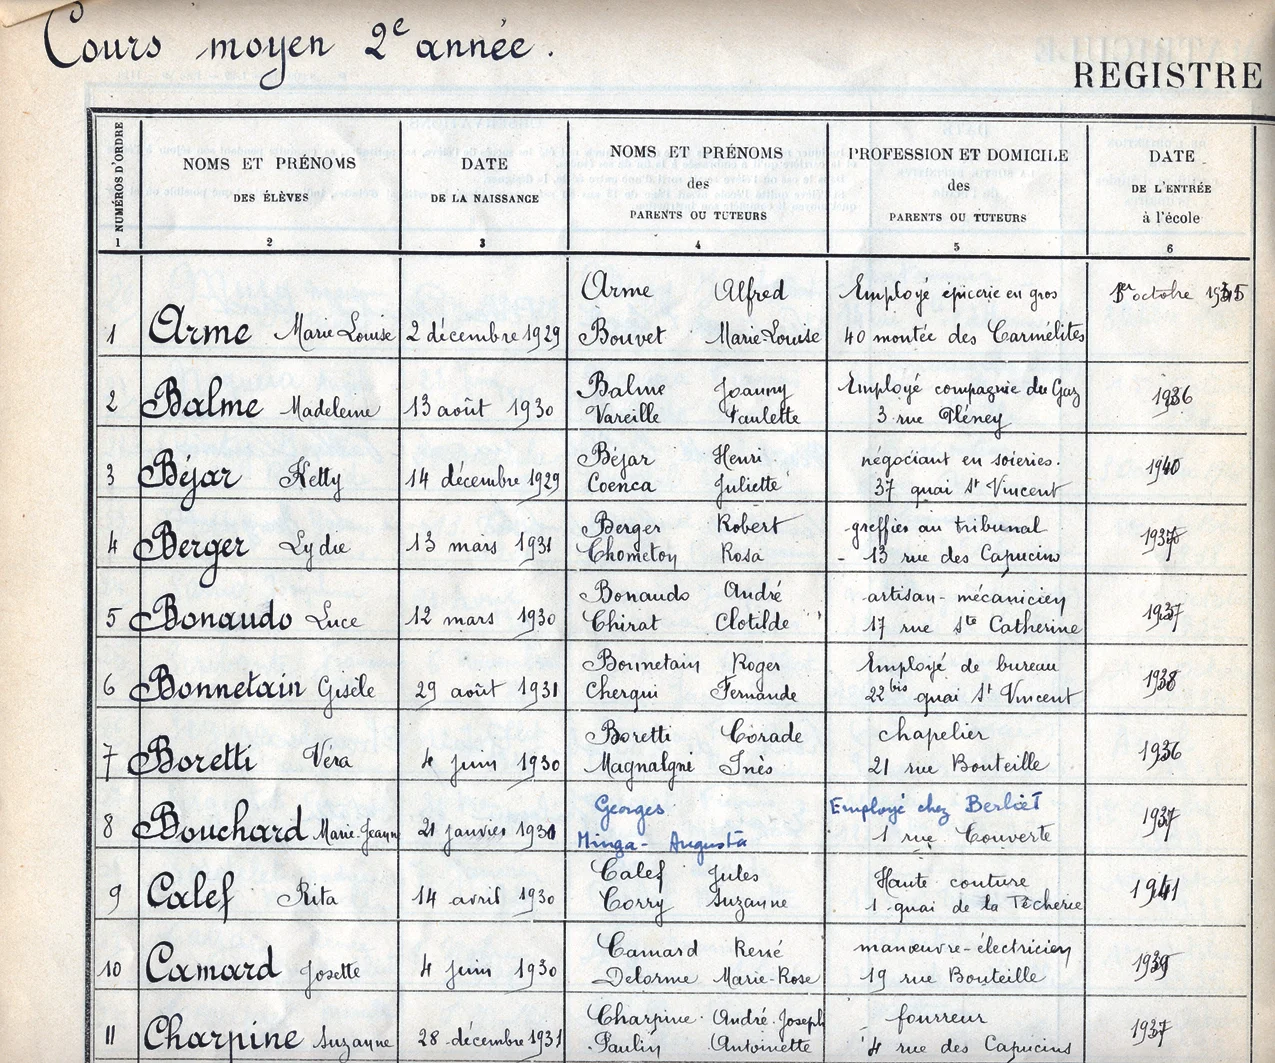 Cours moyen 2e année.
REGISTRE
NUMÉROS D'ORDRE
1
NOMS ET PRÉNOMS
DES ÉLÈVES
2
DATE
DE LA NAISSANCE
3
NOMS ET PRÉNOMS
des
PARENTS OU TUTEURS
4
PROFESSION ET DOMICILE
des
PARENTS OU TUTEURS
5
DATE
DE L'ENTRÉE
à l'école
6
Arme Alfred Employé épicerie en gros 1er octobre
1 Arme Marie-Louise 2 décembre 1929 Bouvet Marie-Louise 40 montée des Carmélites
Balme Joanny Employé compagnie du Gaz 1936
2 Balme Madeleine 13 août 1930 Vareille Paulette 3 rue Pléney
Béjar Henri négociant en soieries. 1940
3 Béjar Ketty 14 décembre 1929 Coenca Juliette 37 quai St Vincent
Berger Robert greffier au tribunal
4 Berger Lydie 13 mars 1931 Chometon Rosa 13 rue des Capucins
Bonaudo André artisan-mécanicien 1937
5 Bonaudo Luce 12 mars 1930 Chirat Clotilde 17 rue Ste Catherine
Bonnetain Roger Employé de bureau 1938
6 Bonnetain Gisèle 29 août 1931 Chergui Fernande 22bis quai St Vincent
Boretti Corade chapelier 1936
7 Boretti Véra 4 juin 1930 Magnalgne Inès 21 rue Bouteille
Georges Employé chez Berliet 1937
8 Bouchard Marie-Jeanne 21 janvier Minga-Augusta 1 rue Couverte
Calef Jules Haute couture 1941
9 Calef Rita 14 avril 1930 Corry Suzanne 1 quai de la Pêcherie
Camard René manœuvre-électricien 1939
10 Camard Josette 4 juin 1930 Delorme Marie-Rose 19 rue Bouteille
Charpine André-Joseph fourreur 1937
11 Charpine Suzanne 28 décembre 1931 Paulin Antoinette 4 rue des Capucins